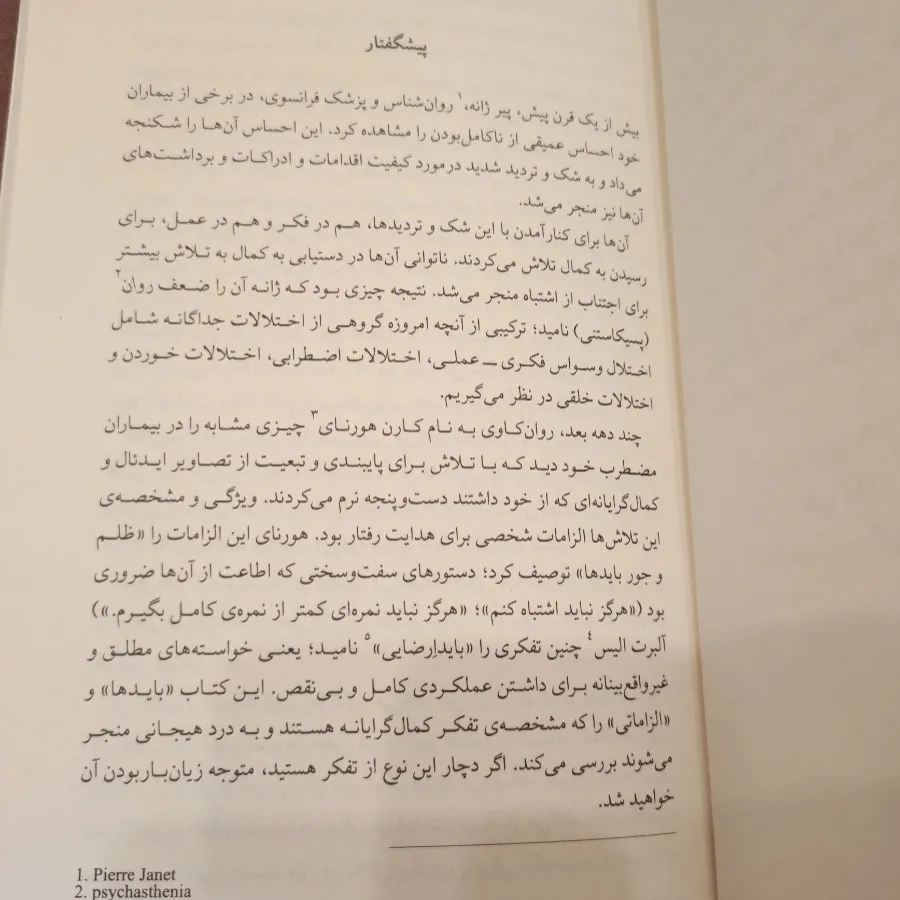 پیشگفتار
بیش از یک قرن پیش، پیر ژانه،۱ روان‌شناس و پزشک فرانسوی، در برخی از بیماران
خود احساس عمیقی از ناکامل‌بودن را مشاهده کرد. این احساس آن‌ها را شکنجه
می‌داد و به شک و تردید شدید درمورد کیفیت اقدامات و ادراکات و برداشت‌های
آن‌ها نیز منجر می‌شد.
آن‌ها برای کنارآمدن با این شک و تردیدها، هم در فکر و هم در عمل، برای
رسیدن به کمال تلاش می‌کردند. ناتوانی آن‌ها در دستیابی به کمال به تلاش بیشتر
برای اجتناب از اشتباه منجر می‌شد. نتیجه چیزی بود که ژانه آن را ضعف روان۲
(پسیکاستنی) نامید؛ ترکیبی از آنچه امروزه گروهی از اختلالات جداگانه شامل
اختلال وسواس فکری ـ عملی، اختلالات اضطرابی، اختلالات خوردن و
اختلالات خلقی در نظر می‌گیریم.
چند دهه بعد، روان‌کاوی به نام کارن هورنای۳ چیزی مشابه را در بیماران
مضطرب خود دید که با تلاش برای پایبندی و تبعیت از تصاویر ایدئال و
کمال‌گرایانه‌ای که از خود داشتند دست‌وپنجه نرم می‌کردند. ویژگی و مشخصه‌ی
این تلاش‌ها الزامات شخصی برای هدایت رفتار بود. هورنای این الزامات را «ظلم
و جور بایدها» توصیف کرد؛ دستورهای سفت‌وسختی که اطاعت از آن‌ها ضروری
بود («هرگز نباید اشتباه کنم»؛ «هرگز نباید نمره‌ای کمتر از نمره‌ی کامل بگیرم.»)
آلبرت الیس۴ چنین تفکری را «بایدارضایی»۵ نامید؛ یعنی خواسته‌های مطلق و
غیرواقع‌بینانه برای داشتن عملکردی کامل و بی‌نقص. این کتاب «بایدها» و
«الزاماتی» را که مشخصه‌ی تفکر کمال‌گرایانه هستند و به درد هیجانی منجر
می‌شوند بررسی می‌کند. اگر دچار این نوع از تفکر هستید، متوجه زیان‌باربودن آن
خواهید شد.
1. Pierre Janet
2. psychasthenia